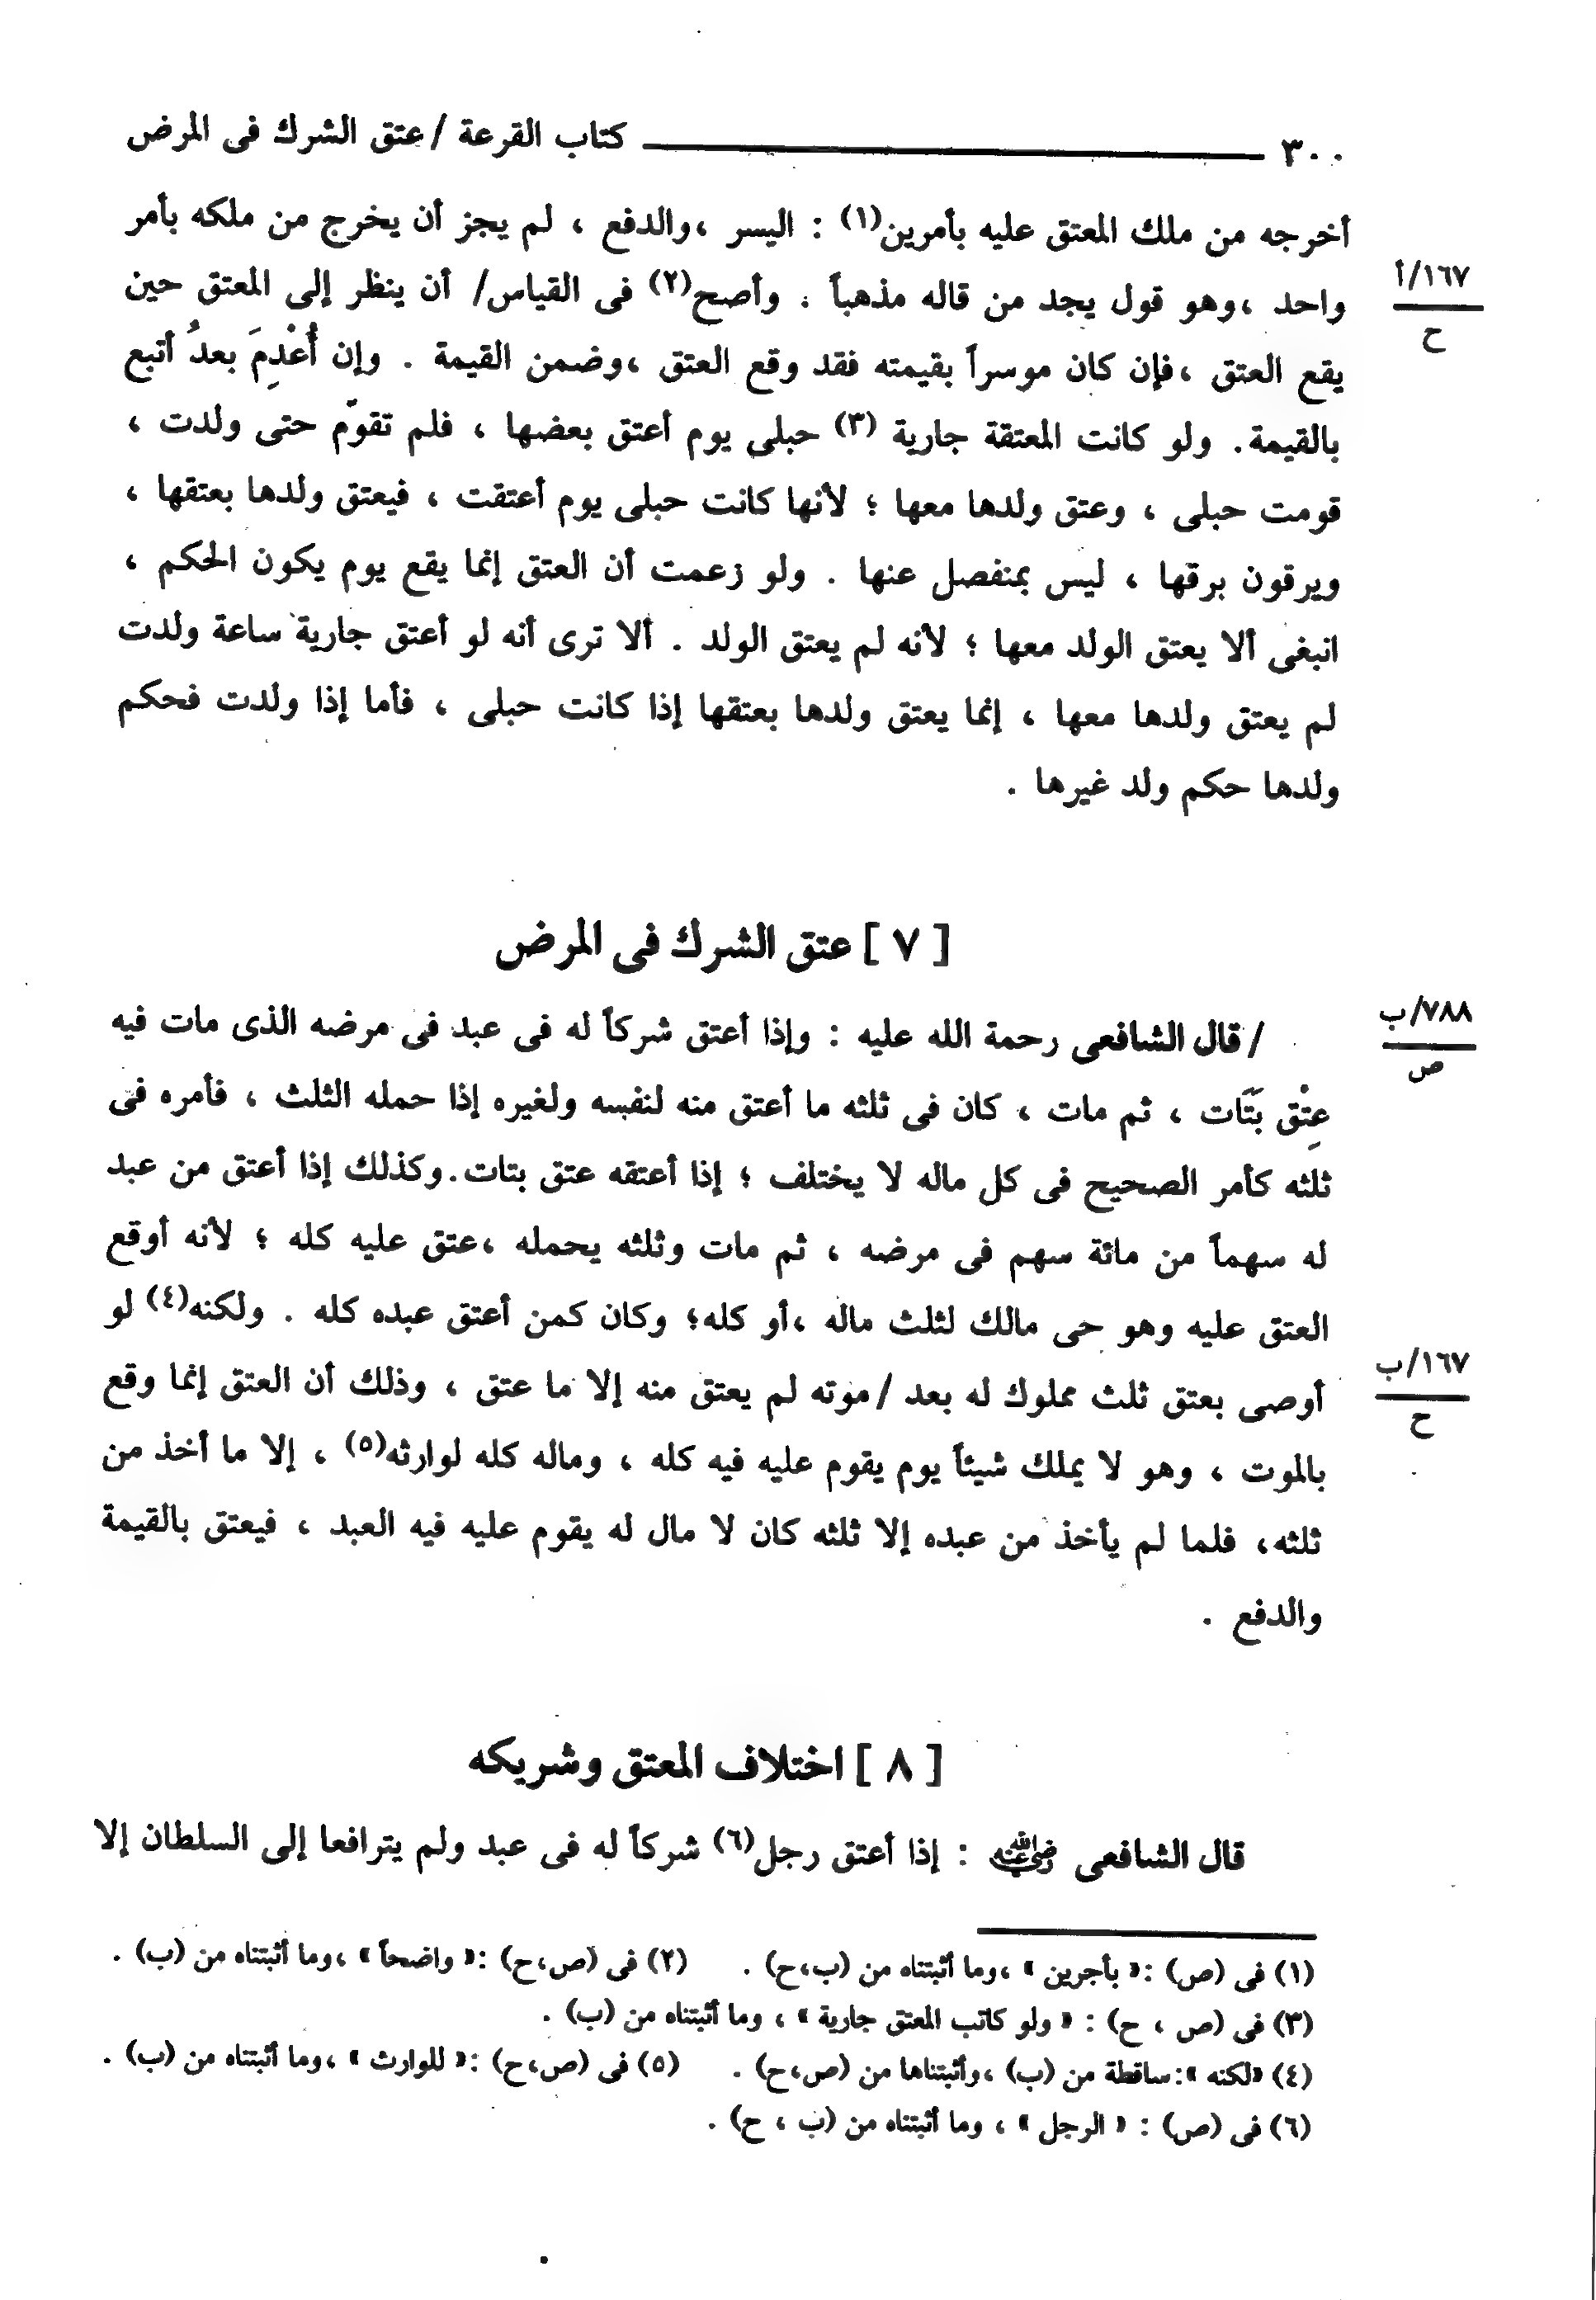 ٣٠٠ كتاب القرعة / عتق الشرك فى المرض
أخرجه من ملك المعتق عليه بأمرين(١) : اليسر ،والدفع ، لم يجز أن يخرج من ملكه بأمر
واحد ،وهو قول يجد من قاله مذهباً . وأصح(٢) فى القياس/ أن ينظر إلى المعتق حين
١٦٧/أ
ح
يقع العتق ،فإن كان موسراً بقيمته فقد وقع العتق ،وضمن القيمة . وإن أُعْدِمَ بعدُ أتبع
بالقيمة. ولو كانت المعتقة جارية (٣) حبلى يوم أعتق بعضها ، فلم تقوّم حتى ولدت ،
قومت حبلى ، وعتق ولدها معها ؛ لأنها كانت حبلى يوم أعتقت ، فيعتق ولدها بعتقها ،
ويرقون برقها ، ليس بمنفصل عنها . ولو زعمت أن العتق إنما يقع يوم يكون الحكم ،
انبغى ألا يعتق الولد معها ؛ لأنه لم يعتق الولد . ألا ترى أنه لو أعتق جارية ساعة ولدت
لم يعتق ولدها معها ، إنما يعتق ولدها بعتقها إذا كانت حبلى ، فأما إذا ولدت فحكم
ولدها حكم ولد غيرها .
[ ٧ ] عتق الشرك فى المرض
/ قال الشافعى رحمة الله عليه : وإذا أعتق شركاً له فى عبد فى مرضه الذى مات فيه
٧٨٨/ب
ص
عِتْق بَتَات ، ثم مات ، كان فى ثلثه ما أعتق منه لنفسه ولغيره إذا حمله الثلث ، فأمره فى
ثلثه كأمر الصحيح فى كل ماله لا يختلف ؛ إذا أعتقه عتق بتات.وكذلك إذا أعتق من عبد
له سهماً من مائة سهم فى مرضه ، ثم مات وثلثه يحمله ،عتق عليه كله ؛ لأنه أوقع
العتق عليه وهو حى مالك لثلث ماله ،أو كله؛ وكان كمن أعتق عبده كله . ولكنه(٤) لو
أوصى بعتق ثلث مملوك له بعد /موته لم يعتق منه إلا ما عتق ، وذلك أن العتق إنما وقع
١٦٧/ب
ح
بالموت ، وهو لا يملك شيئاً يوم يقوم عليه فيه كله ، وماله كله لوارثه(٥) ، إلا ما أخذ من
ثلثه، فلما لم يأخذ من عبده إلا ثلثه كان لا مال له يقوم عليه فيه العبد ، فيعتق بالقيمة
والدفع .
[ ٨ ] اختلاف المعتق وشريكه
قال الشافعى رضي الله عنه : إذا أعتق رجل(٦) شركاً له فى عبد ولم يترافعا إلى السلطان إلا
(١) فى (ص) :« بأجرين » ،وما أثبتناه من (ب،ح) . (٢) فى (ص،ح) :« واضحاً » ،وما أثبتناه من (ب) .
(٣) فى (ص ، ح) : « ولو كاتب المعتق جارية » ، وما أثبتناه من (ب) .
(٤) «لكنه »:ساقطة من (ب) ،وأثبتناها من (ص،ح) . (٥) فى (ص،ح) :« للوارث » ،وما أثبتناه من (ب) .
(٦) فى (ص) : « الرجل » ، وما أثبتناه من (ب ، ح) .